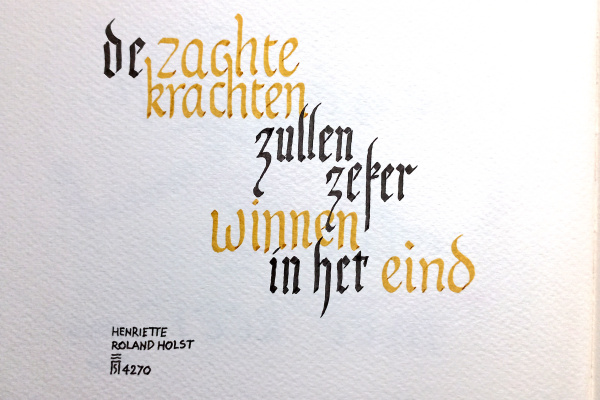 de zachte
krachten
zullen
zeker
winnen
in het eind
HENRIETTE
ROLAND HOLST
4270